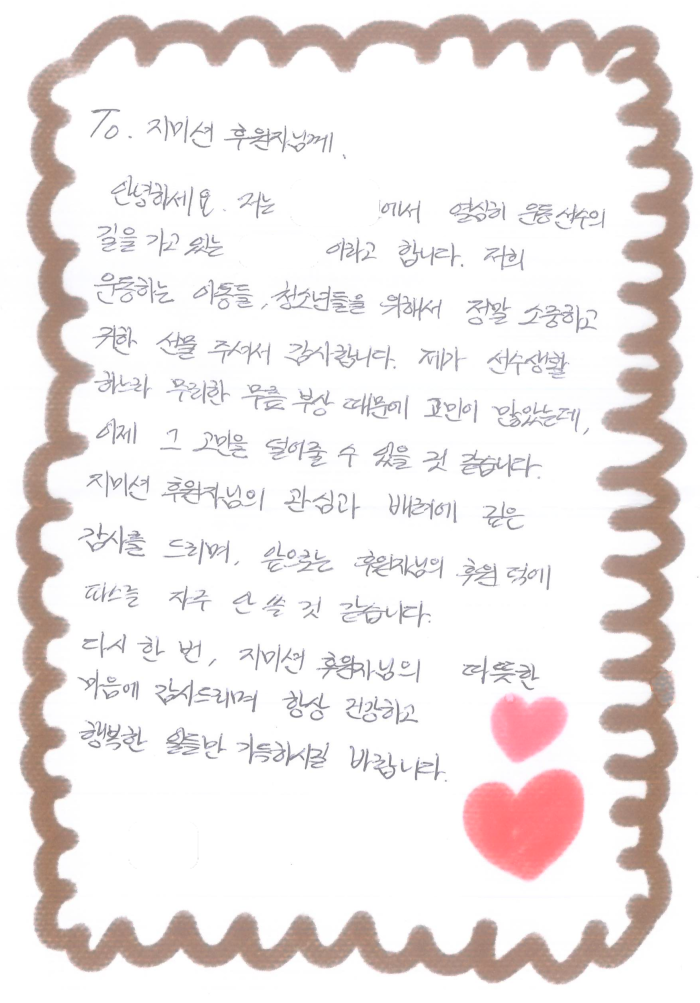 To. 지미션 후원자님께,
안녕하세요. 저는 에서 열심히 운동선수의
길을 가고 있는 이라고 합니다. 저희
운동하는 아동들, 청소년들을 위해서 정말 소중하고
귀한 선물 주셔서 감사합니다. 제가 선수생활
하느라 무리한 무릎 부상 때문에 고민이 많았는데,
이제 그 고민을 덜어줄 수 있을 것 같습니다.
지미션 후원자님의 관심과 배려에 깊은
감사를 드리며, 앞으로는 후원자님의 후원 덕에
파스를 자주 안 쓸 것 같습니다.
다시 한 번, 지미션 후원자님의 따뜻한
마음에 감사드리며 항상 건강하고
행복한 일들만 가득하시길 바랍니다.